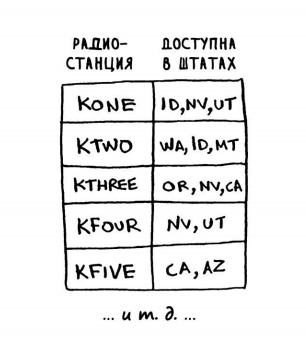 РАДИО- ДОСТУПНА
СТАНЦИЯ В ШТАТАХ
KONE ID,NV,UT
KTWO WA,ID,MT
KTHREE OR,NV,CA
KFOUR NV,UT
KFIVE CA,AZ
... и т. д. ...